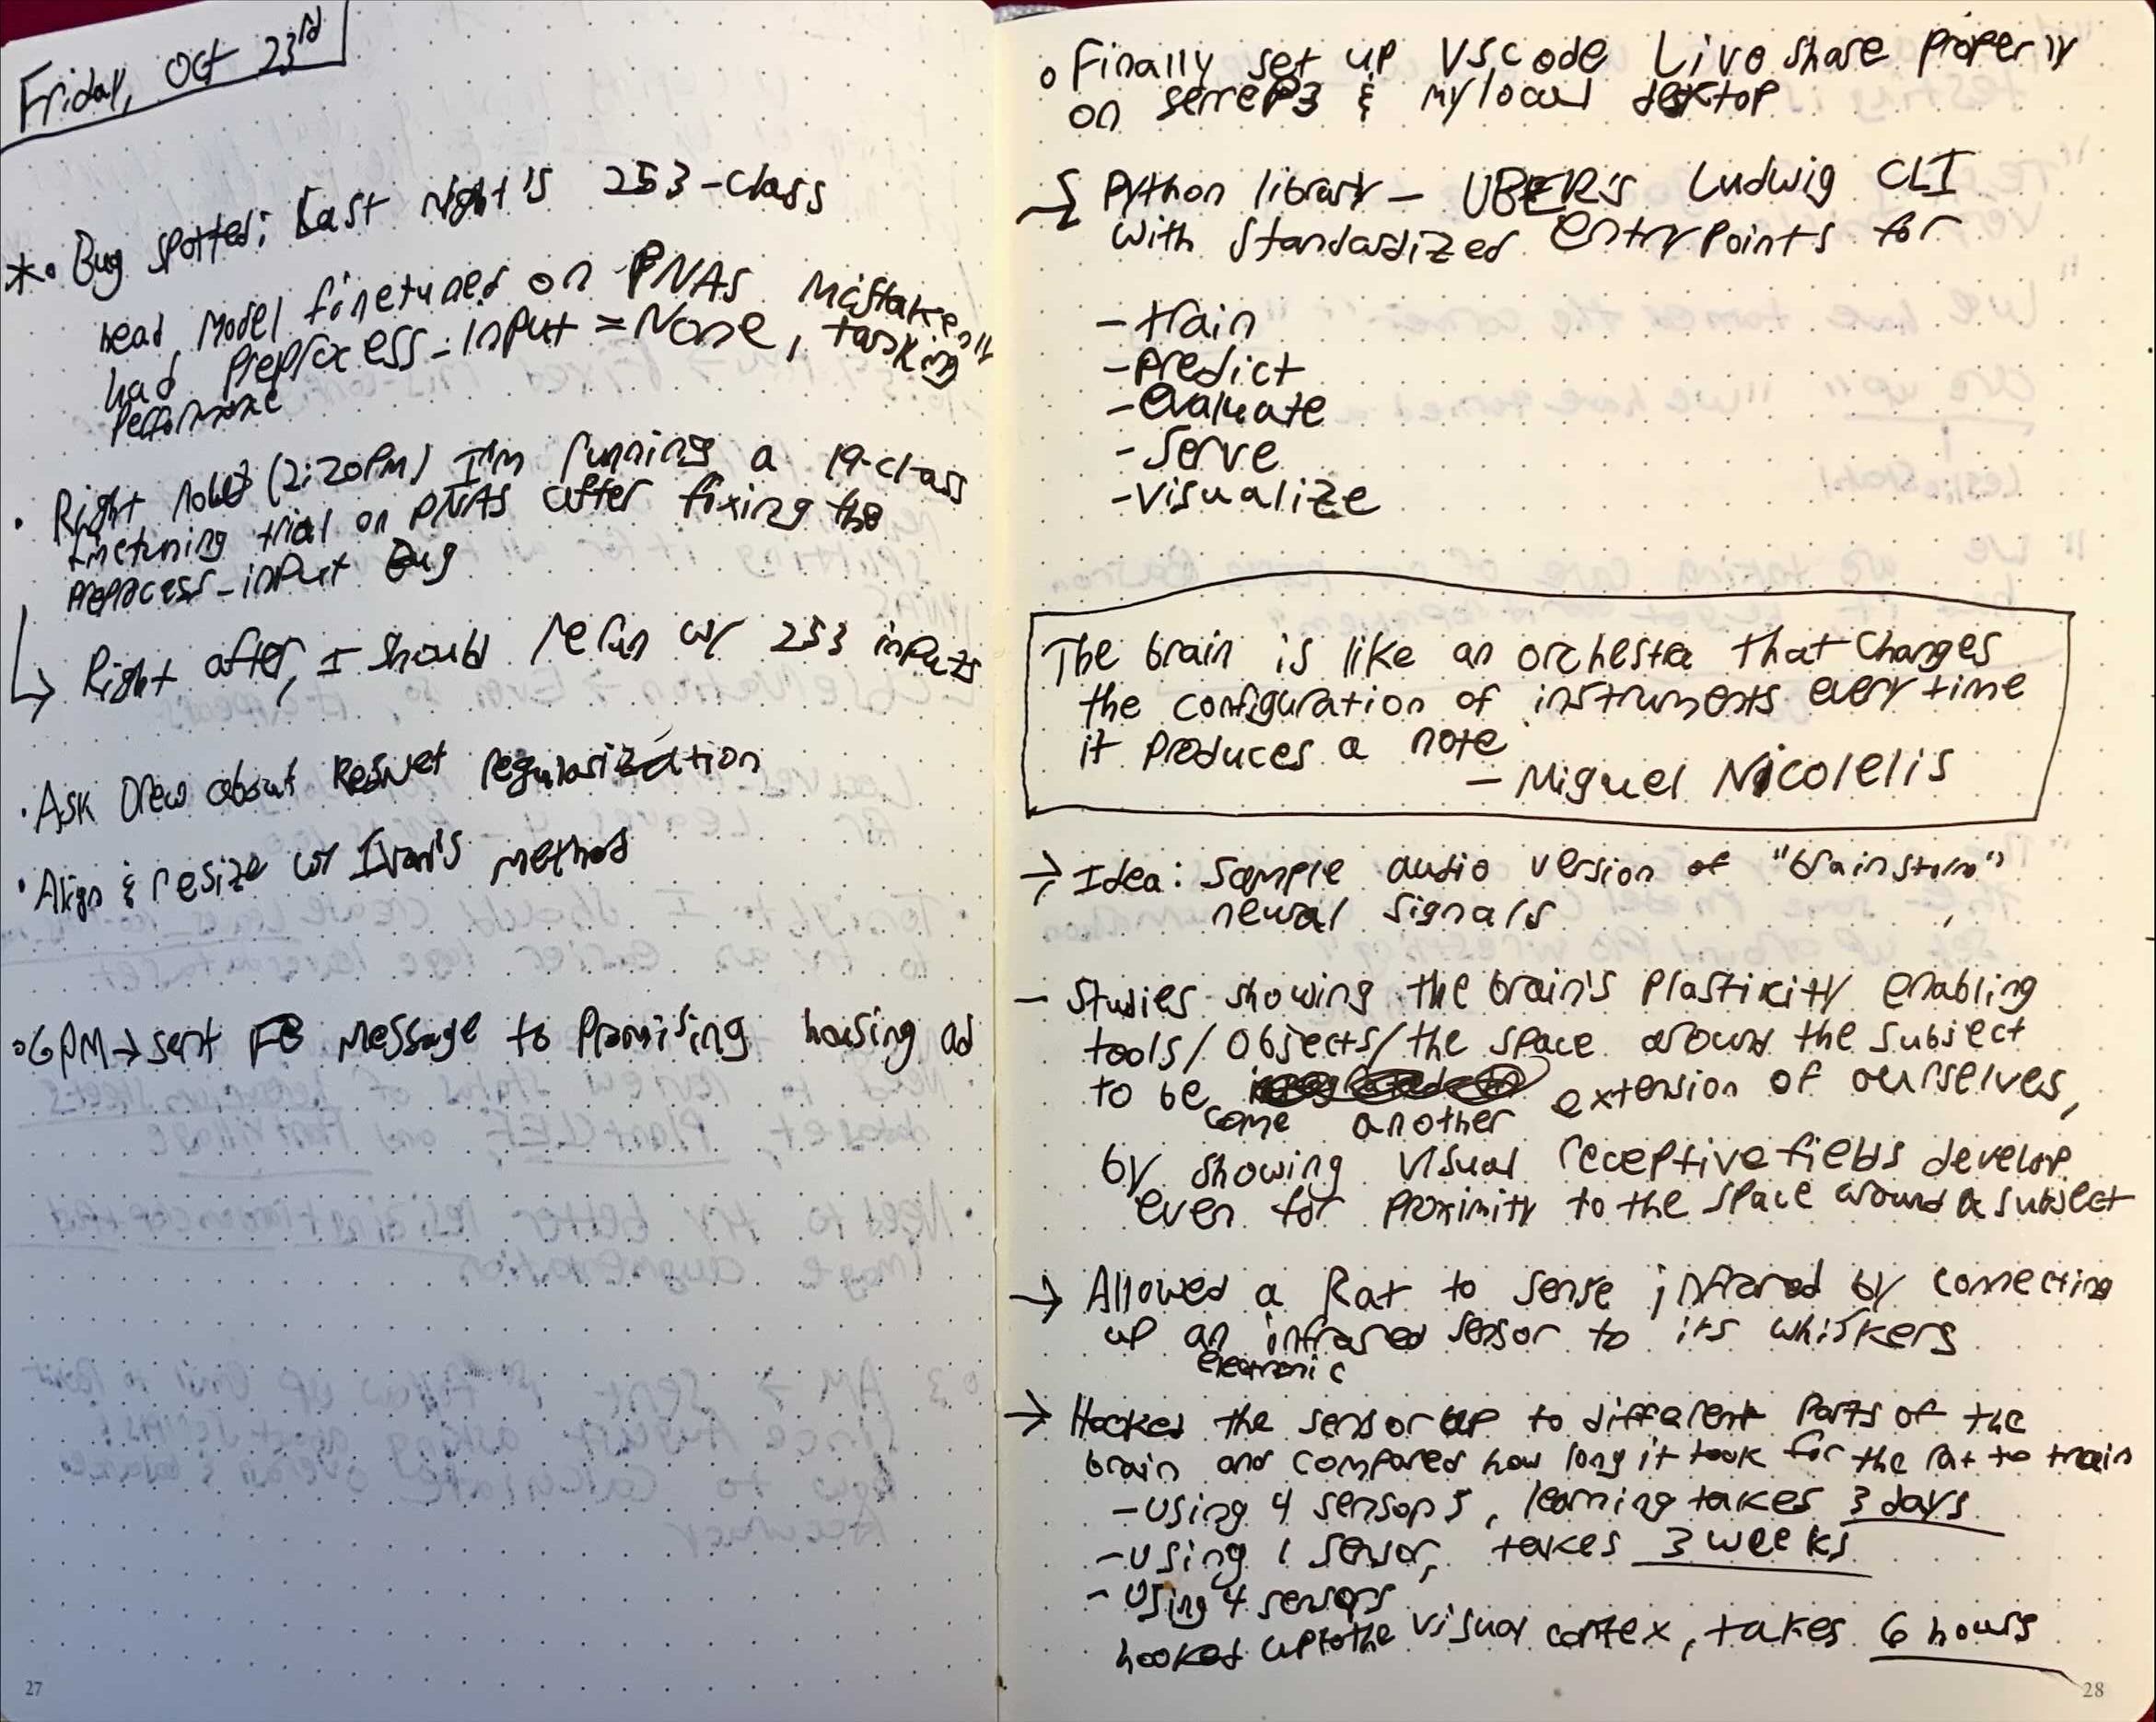 Friday, Oct 23rd
*• Bug spotted: Last night's 253-class
head model finetuned on PNAS mistakenly
had preprocess_input = None, tanking
performance
• Right now (2:20PM) I'm running a 19-class
finetuning trial on PNAS after fixing the
preprocess_input bug
↳ Right after, I should rerun w/ 253 inputs
• Ask Drew about ResNet regularization
• Align & resize w/ Ivan's method
○ 6PM → sent FB message to promising housing ad
27
○ Finally set up VScode Live share properly
on serrep3 & my local desktop
→ Python library – UBER's Ludwig CLI
with standardized entrypoints for
- train
- predict
- evaluate
- serve
- visualize
The brain is like an orchestra that changes
the configuration of instruments every time
it produces a note
- Miguel Nicolelis
→ Idea: Sample audio version of "brainstorm"
neural signals
- Studies showing the brain's plasticity enabling
tools/objects/the space around the subject
to become another extension of ourselves,
by showing visual receptive fields develop
even for proximity to the space around a subject
→ Allowed a Rat to sense infrared by connecting
up an infrared sensor to its whiskers
electronic
→ Hooked the sensor up to different parts of the
brain and compared how long it took for the rat to train
- Using 4 sensors, learning takes 3 days
- Using 1 sensor, takes 3 weeks
- Using 4 sensors
hooked up to the visual cortex, takes 6 hours
28